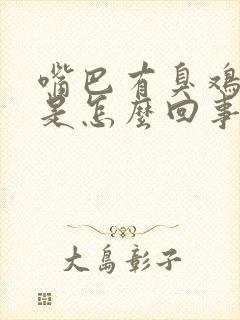 嘴巴有臭鸡
是怎麽回事
大島彰子